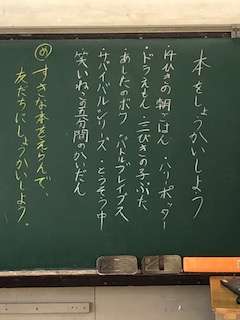 本をしょうかいしよう
・サバ缶の朝ごはん・ハリーポッター
・ドラえもん・三びきの子ぶた
あしたのボク・バトルブレイブス
・サバイバルシリーズ・とうそう中
笑いねこの五分間のかいだん
め すきな本をえらんで、
友だちにしょうかいしよう。